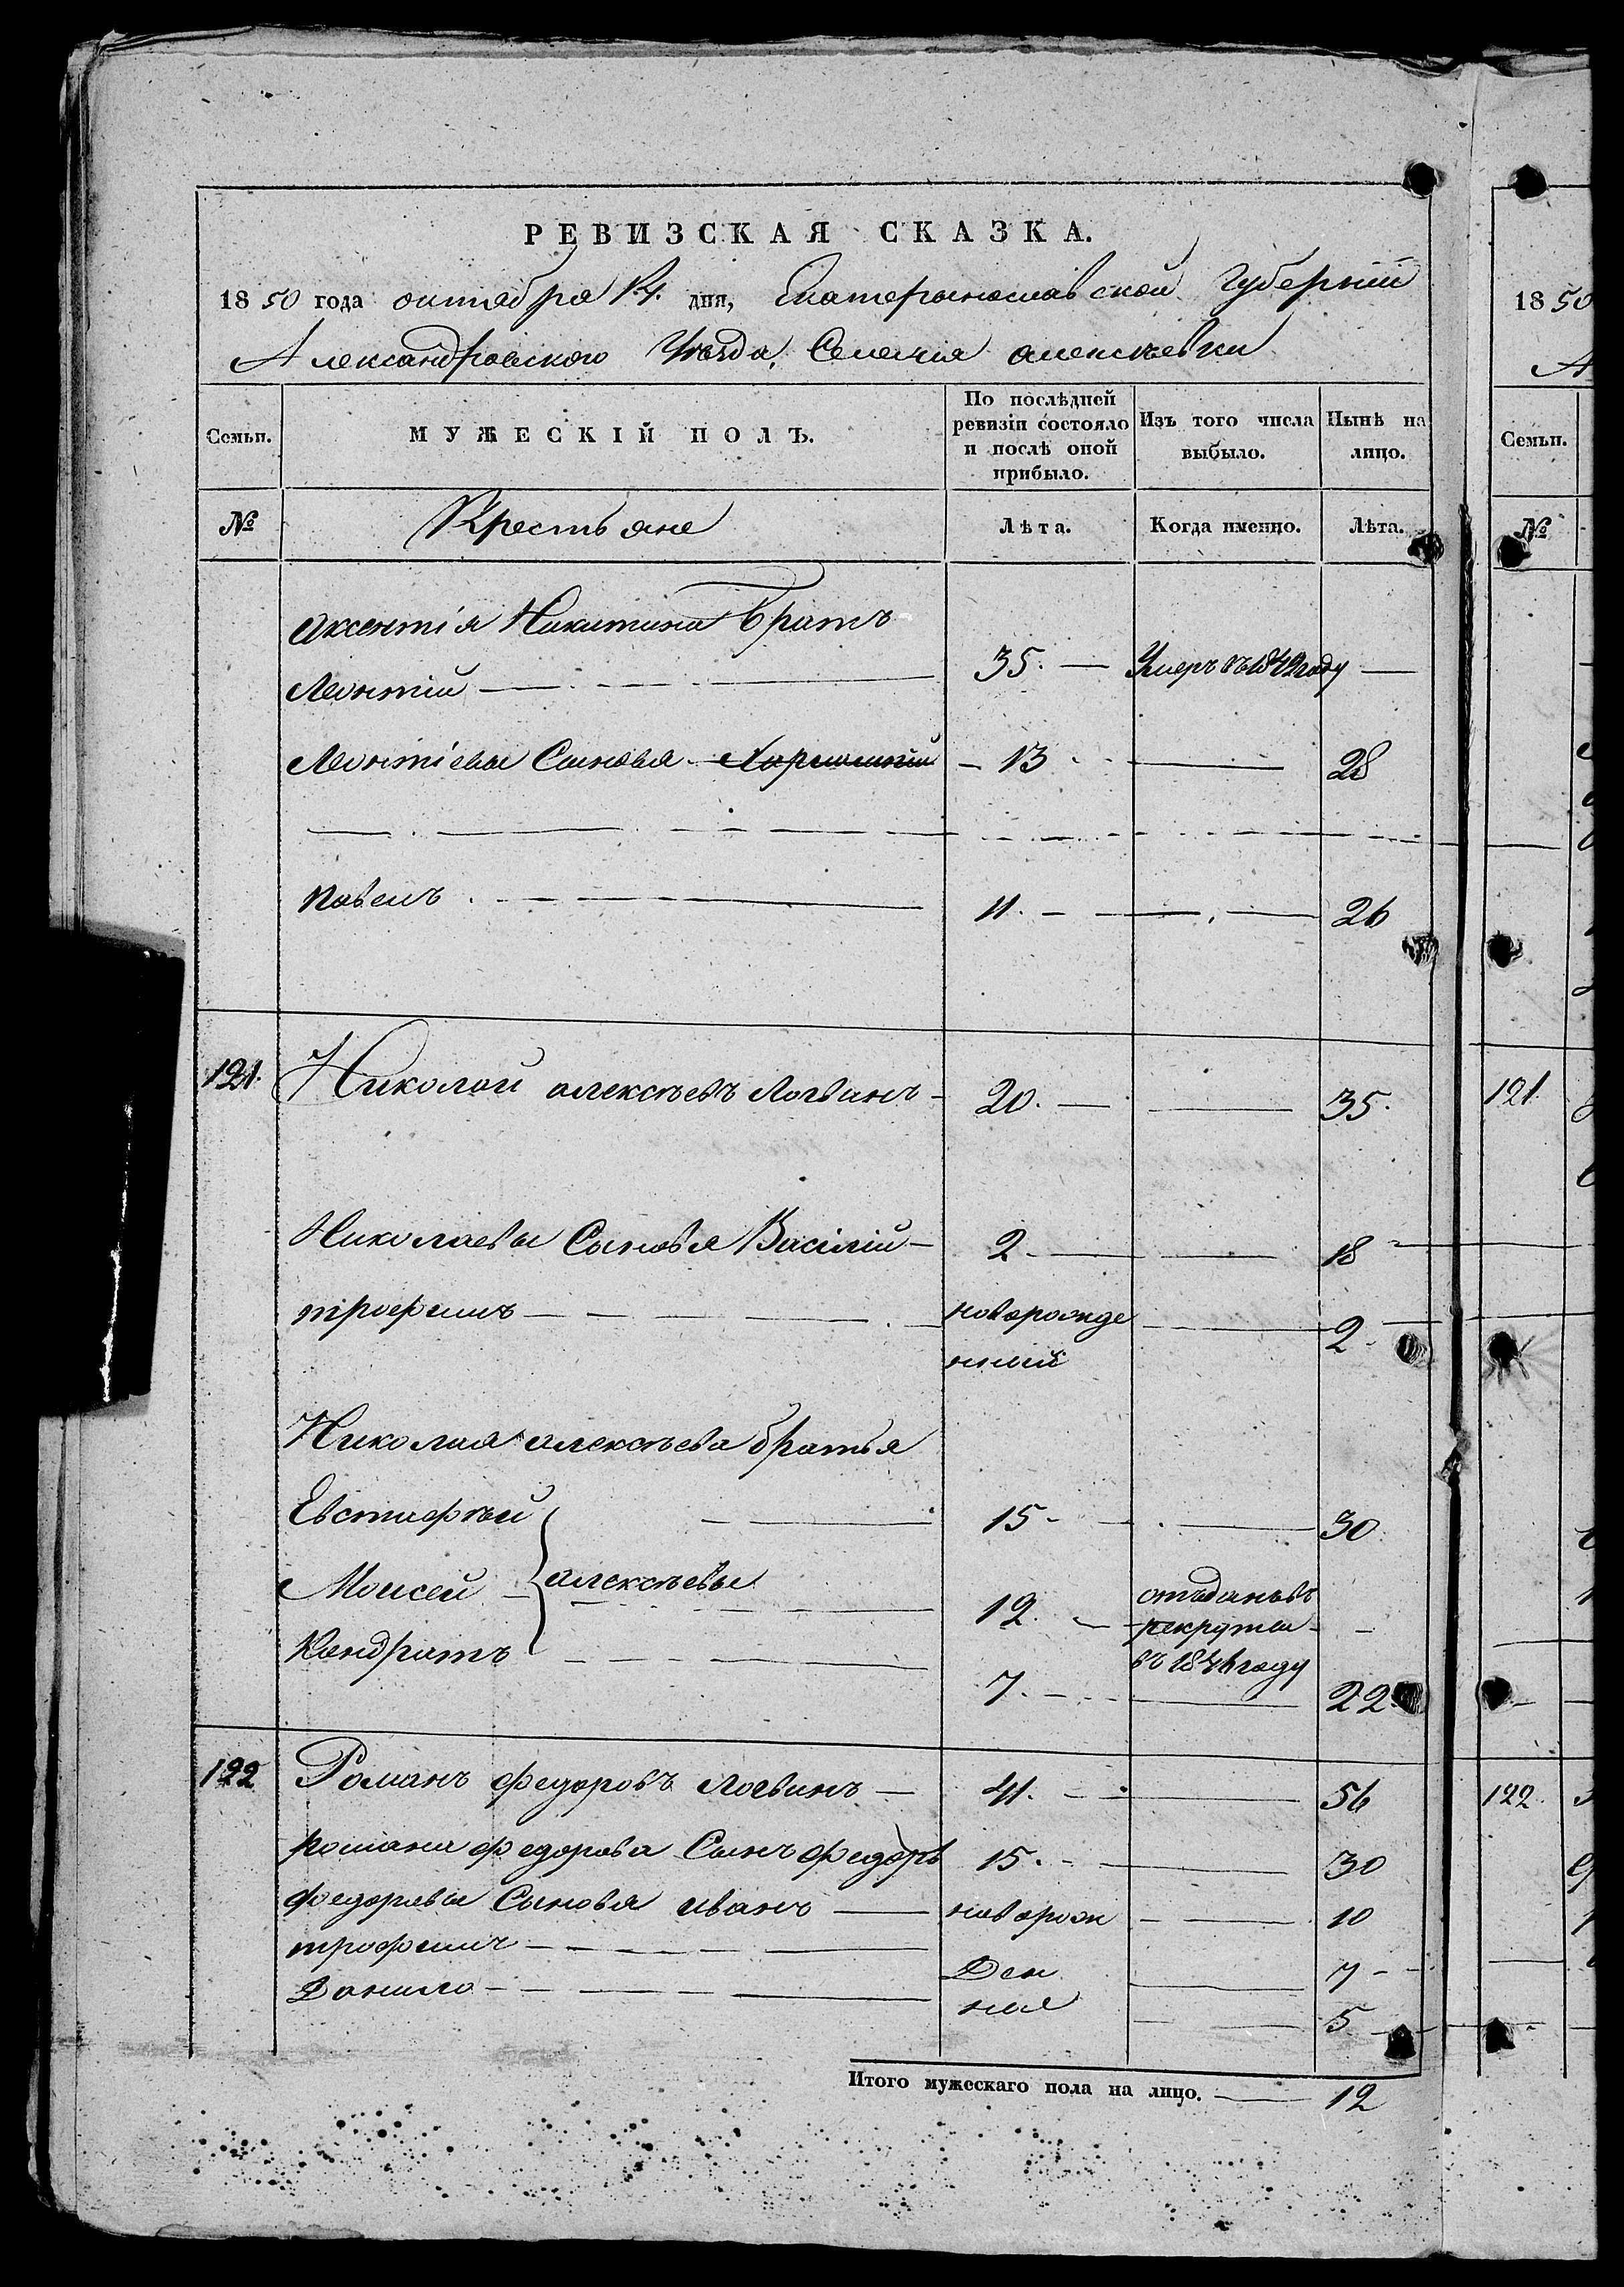 РЕВИЗСКАЯ СКАЗКА.
1850 года октября 14. дня, Екатеринославской Губерніи
Александровского Уѣзда, Селенія алексѣевки
Семьи. МУЖЕСКІЙ ПОЛЪ. По послѣдней ревизіи состояло и послѣ оной прибыло. Изъ того числа выбыло. Нынѣ на лицо.
№ Крестьяне Лѣта. Когда именно. Лѣта.
аксентія Никитина братъ
Леонтій 35. Умеръ въ 1842 году
Леонтіевы Сыновья 13 28
павелъ 11. 26
121. Николай алексѣевъ Логвинъ 20. 35.
Николаевы Сыновья Василій 2. 18
трофимъ новорожде 2
нный
Николая алексѣева братья
Евстафѣй 15 30
Моисей алексѣевы 12. отъданъ въ
рекруты
Кондратъ въ 1846 году
7. 22
122 Романъ федоровъ логвинъ 41. 56
романа федорова Сынъ федоръ 15. 30
федоровы Сыновья иванъ новорож 10
трофимъ Ден 7
Данило ныя 5
Итого мужескаго пола на лицо. 12
1850
А
Семьи.
№
121
122